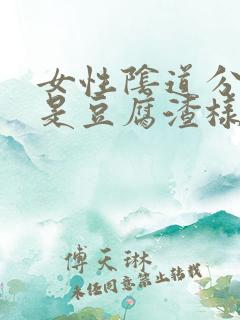 女性陰道分
是豆腐渣樣
傅天琳
未經同意禁止轉載